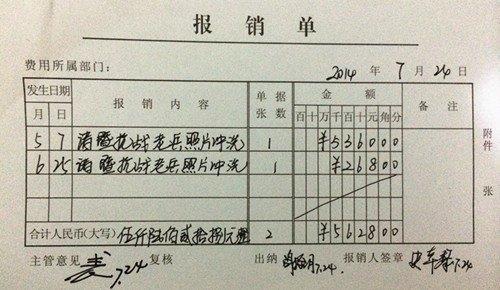 报销单
费用所属部门: 2014 年 7 月 24 日
发生日期 报销内容 单据张数 金额 备注
月 日 百 十 万 千 百 十 元 角 分
5 7 诸暨抗战老兵照片冲洗 1 ¥536000
6 25 诸暨抗战老兵照片冲洗 1 ¥26800
合计人民币(大写) 伍仟陆佰贰拾捌元整 2 ¥562800
附件 张
主管意见 7.24 复核 出纳 7.24. 报销人签章 7.24